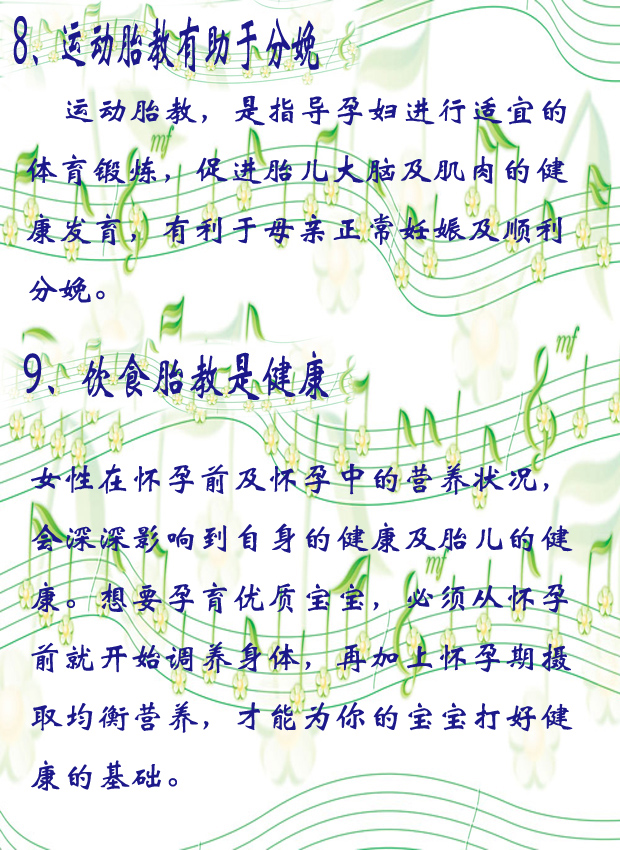 8、运动胎教有助于分娩
运动胎教，是指导孕妇进行适宜的
体育锻炼，促进胎儿大脑及肌肉的健
康发育，有利于母亲正常妊娠及顺利
分娩。
mf
9、饮食胎教是健康
mf
女性在怀孕前及怀孕中的营养状况，
会深深影响到自身的健康及胎儿的健
mf
康。想要孕育优质宝宝，必须从怀孕
前就开始调养身体，再加上怀孕期摄
取均衡营养，才能为你的宝宝打好健
康的基础。